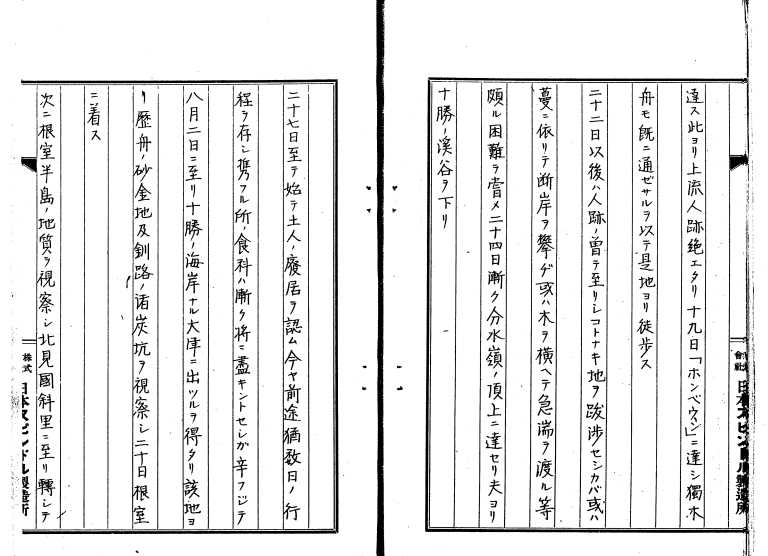 達ス此ヨリ上流人跡絶エタリ十九日「ホンベウィン」ニ達シ獨木
舟モ既ニ通ゼサルヲ以テ是地ヨリ徒歩ス
二十二日以後ハ人跡ノ曽テ至リシコトナキ地ヲ跋渉セシカバ或ハ
蔓ニ依リテ断岸ヲ攀ヂ或ハ木ヲ横ヘテ急湍ヲ渡ル等
頗ル困難ヲ嘗メ二十四日漸ク分水嶺ノ頂上ニ達セリ夫ヨリ
十勝ノ溪谷ヲ下リ
株式會社日本スピンドル製造所
二十七日至テ始テ土人ノ廢居ヲ認ム今ヤ前途猶数日ノ行
程ヲ存シ携フル所ノ食料ハ漸ク將ニ盡キントセシガ辛フジテ
八月二日ニ至リ十勝ノ海岸ナル大津ニ出ツルヲ得タリ該地ヨ
リ歴舟ノ砂金地及釧路ノ诸炭坑ヲ視察シ二十日根室
ニ着ス
次ニ根室半島ノ地質ヲ視察シ北見國斜里ニ至リ轉シテ
株式日本スピンドル製造所